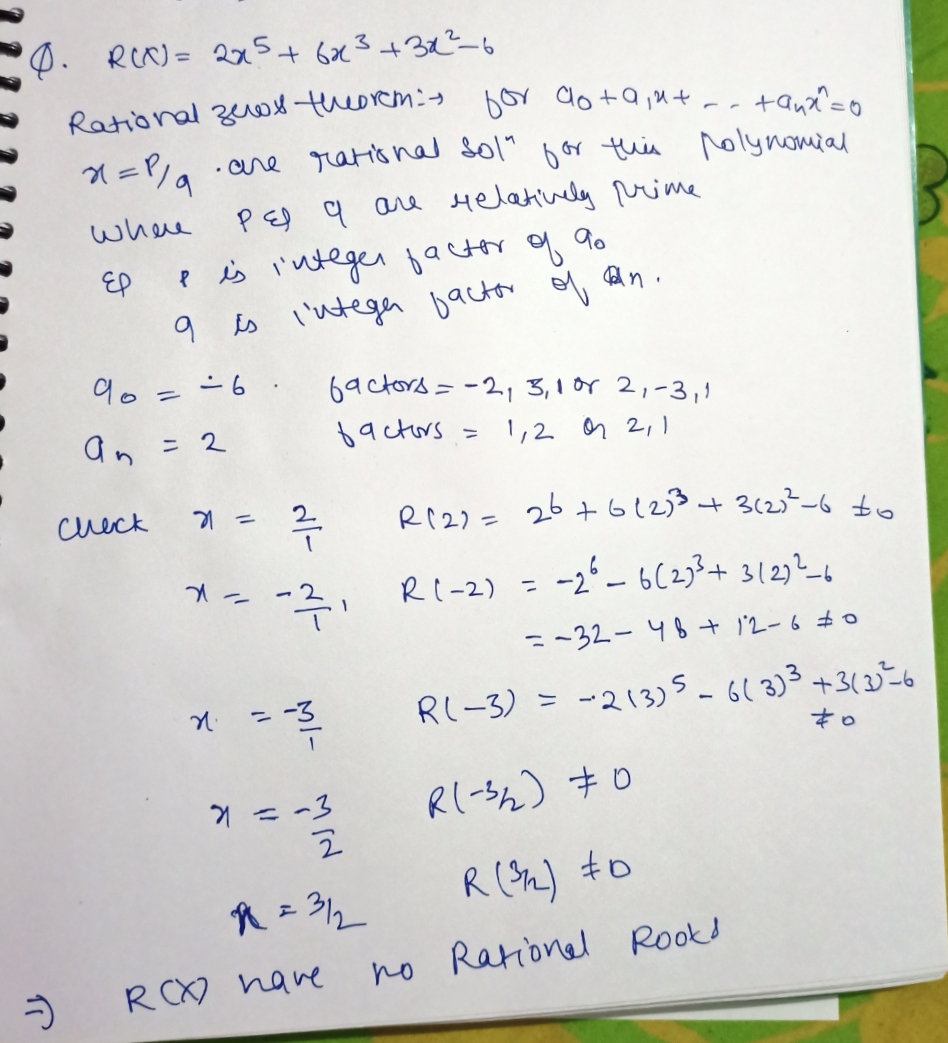 Q. R(X) = 2x⁵ + 6x³ + 3x² - 6
Rational zeros theorem :→ for a₀ + a₁x + - - + aₙxⁿ = 0
x = P/q . are rational Solⁿ for this polynomial
where P & q are relatively prime
& P is integer factor of a₀
q is integer factor of an.
a₀ = -6 . factors = -2, 3, 1 or 2, -3, 1
aₙ = 2 factors = 1, 2 or 2, 1
Check x = 2/1 R(2) = 2⁶ + 6(2)³ + 3(2)² - 6 ≠ 0
x = -2/1, R(-2) = -2⁶ - 6(2)³ + 3(2)² - 6
= -32 - 48 + 12 - 6 ≠ 0
x. = -3/1 R(-3) = -2(3)⁵ - 6(3)³ + 3(3)² - 6
≠ 0
x = -3/2 R(-3/2) ≠ 0
x = 3/2 R(3/2) ≠ 0
⇒ R(X) have no Rational Rooks